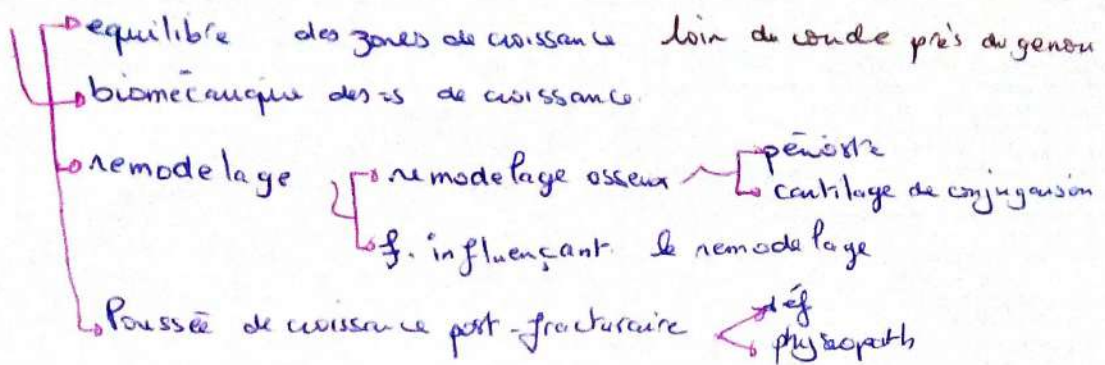 equilibre des zones de croissance loin du coude près du genou
biomécanique des zs de croissance.
remodelage remodelage osseux périoste
cartilage de conjugaison
f. influençant le remodelage
Poussée de croissance post-fracturaire déf
physiopath